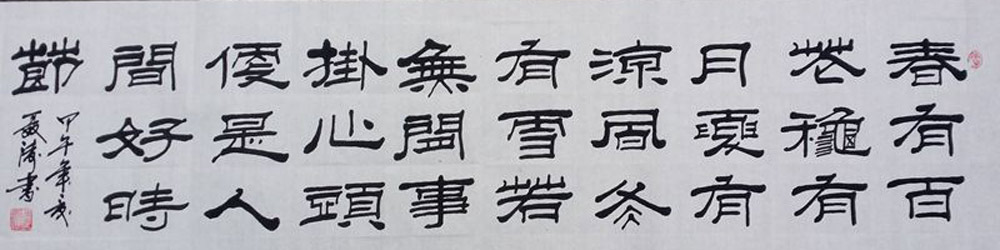 春有百
花龝有
月夏有
涼風冬
有雪若
無閒事
掛心頭
便是人
間好時
節
甲午年
書